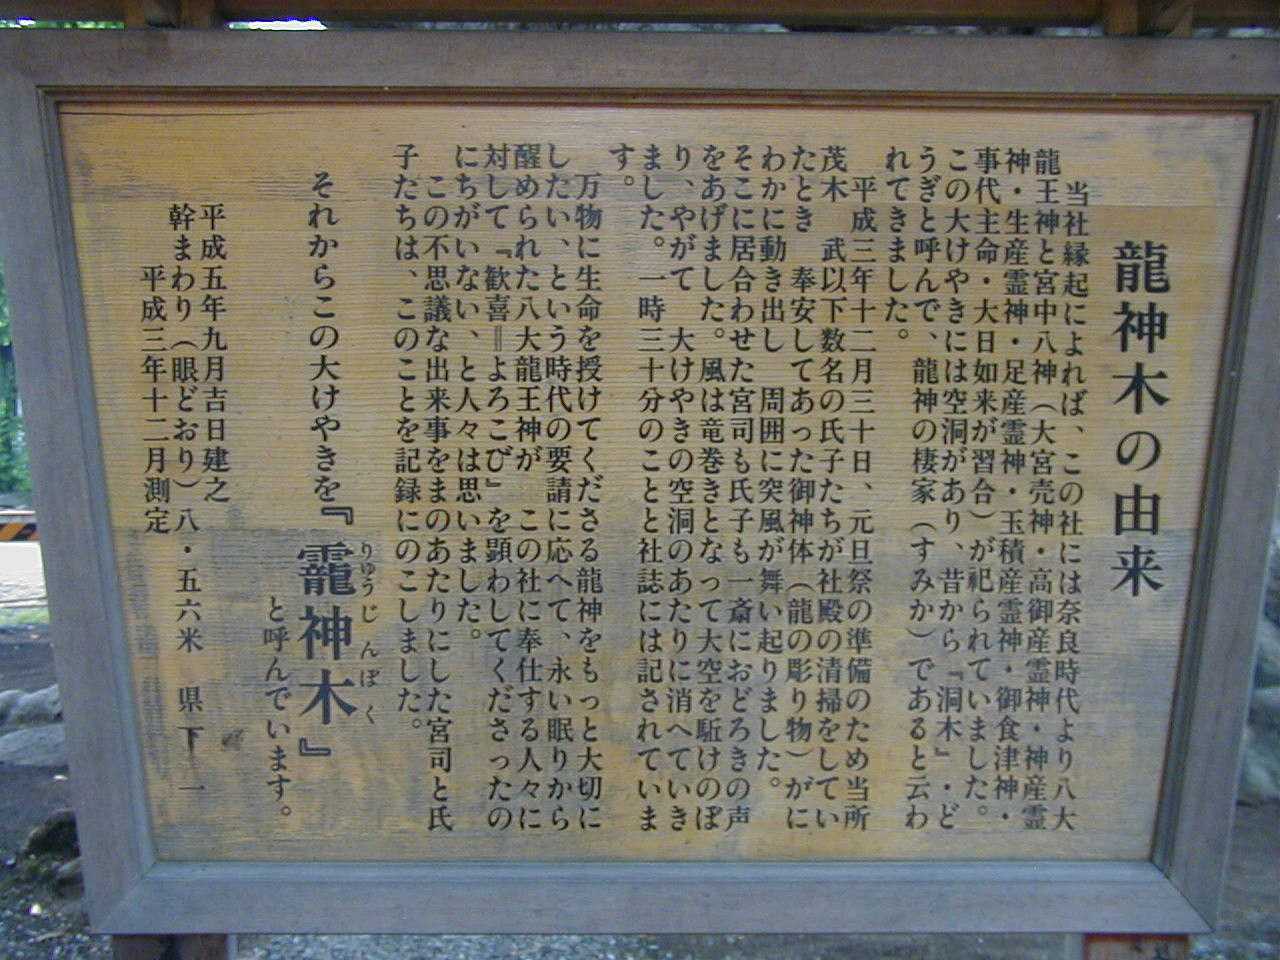 龍神木の由来
当社縁起によれば、この社には奈良時代より八大
龍王神と宮中八神（大宮売神・高御産霊神・神産霊
神・生産霊神・足産霊神・玉積産霊神・御食津神・
事代主命・大日如来が習合）が祀られていました。
この大けやきには空洞があり、昔から『洞木』・ど
うぎと呼んで、龍神の棲家（すみか）であると云わ
れてきました。
平成三年十二月三十日、元旦祭の準備のため当所
茂木　武以下数名の氏子たちが社殿の清掃をしてい
たとき　奉安してあった御神体（龍の彫り物）がに
わかに動き出し　周囲に突風が舞い起りました。
そこに居合わせた宮司も氏子も一斎におどろきの声
をあげました。風は竜巻きとなって大空を駈けのぼ
り、やがて　大けやきの空洞のあたりに消へていき
ました。一時三十分のことと社誌には記されていま
す。
万物に生命を授けてくださる龍神をもっと大切に
したい、という時代の要請に応へて、永い眠りから
醒められた八大龍王神が　この社に奉仕する人々に
対して『歓喜＝よろこび』を顕わしてくださったの
にちがいない、と人々は思いました。
この不思議な出来事をまのあたりにした宮司と氏
子たちは、このことを記録にのこしました。
それからこの大けやきを『龗神木』
りゅうじんぼく
と呼んでいます。
平成五年九月吉日建之
幹まわり（眼どおり）八・五六米　県下一
平成三年十二月測定